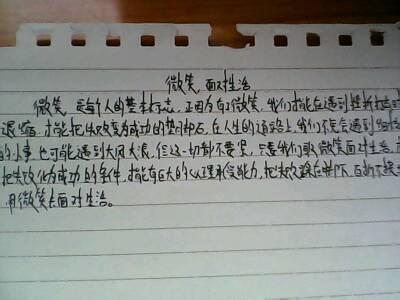 微笑 面对生活
微笑 是每个人的基本标志,正因为有了微笑,我们才能在遇到挫折时
退缩,才能把失败变为成功的垫脚石,在人生的道路上,我们不免会遇到
的小事,也可能遇到大风大浪,但这一切都不要紧,只要我们取微笑面对生活,
把失败化为成功的条件,才能有巨大的心理承受能力,把失败踩在脚下,百折不挠
用微笑去面对生活。